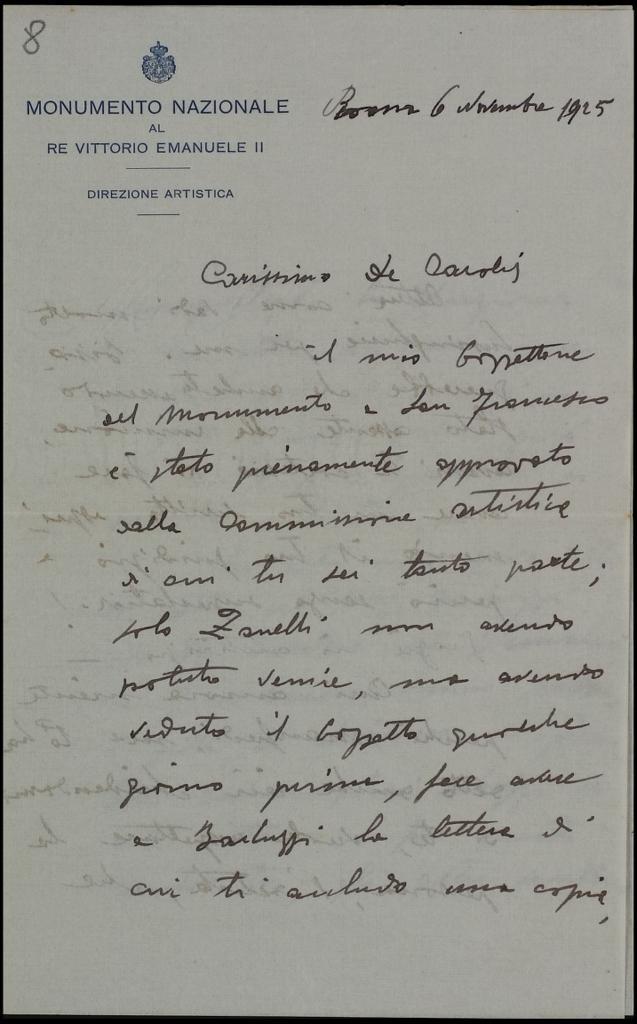 8
MONUMENTO NAZIONALE
AL
RE VITTORIO EMANUELE II
DIREZIONE ARTISTICA
Roma 6 Novembre 1925
Carissimo De Carolis
il mio bozzettone
del Monumento a San Francesco
è stato pienamente approvato
dalla Commissione artistica
di cui tu sei tanta parte;
solo Zanelli non avendo
potuto venire, ma avendo
veduto il bozzetto qualche
giorno prima, fece avere
a Barluzzi la lettera di
cui ti accludo una copia,